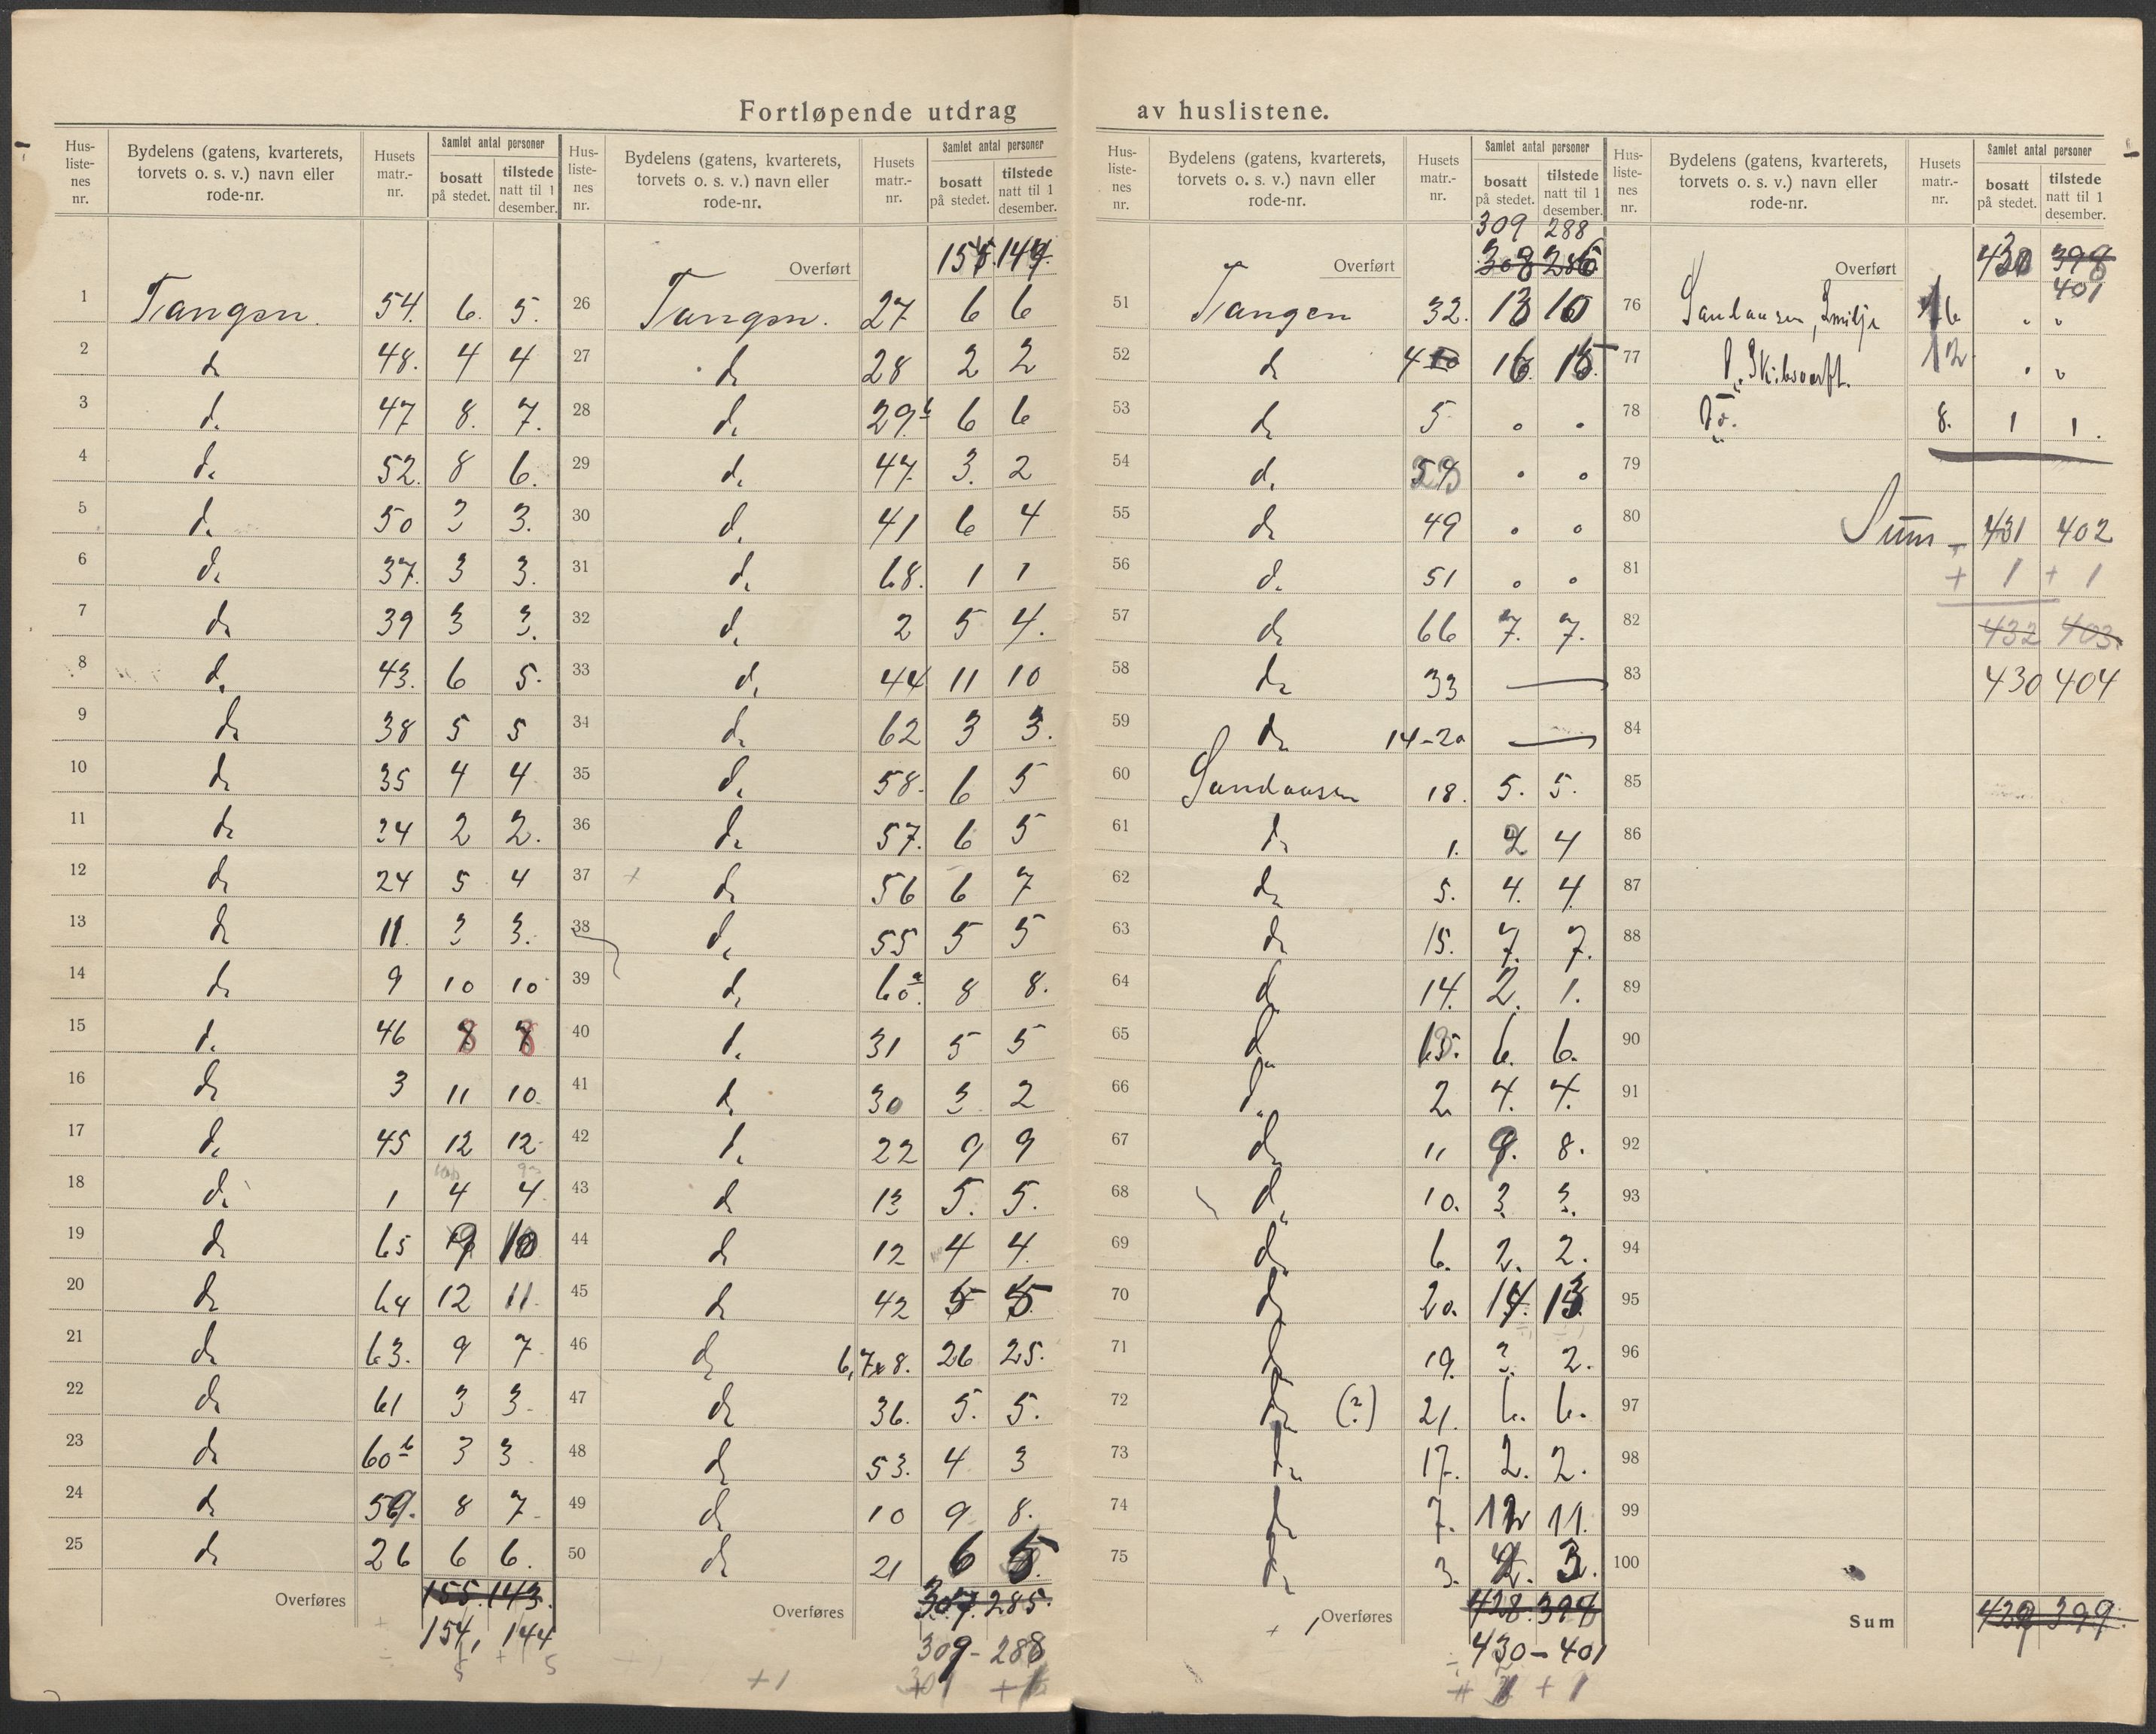 Fortløpende utdrag av huslistene.
Hus-liste-nes nr. | Bydelens (gatens, kvarterets, torvets o. s. v.) navn eller rode-nr. | Husets matr.-nr. | Samlet antal personer | bosatt på stedet. | tilstede natt til 1 desember.
1 Tangen. 54. 6. 5.
2 do 48. 4 4
3 do 47 8. 7.
4 do 52. 8 6.
5 do 50 3 3.
6 do 37. 3 3.
7 do 39 3 3.
8 do 43. 6 5.
9 do 38 5 5
10 do 35 4 4
11 do 34 2 2.
12 do 24 5 4
13 do 11. 3 3.
14 do 9 10 10
15 do 46 8 8
16 do 3 11 10.
17 do 45 12 12
18 do 1 4 4
19 do 65 9 10
20 do 64 12 11
21 do 63. 9 7
22 do 61 3 3
23 do 60b 3 3
24 do 59. 8 7
25 do 26 6 6.
Overføres 155. 143.
154, 144
Hus-liste-nes nr. | Bydelens (gatens, kvarterets, torvets o. s. v.) navn eller rode-nr. | Husets matr.-nr. | Samlet antal personer | bosatt på stedet. | tilstede natt til 1 desember.
Overført 154 144
26 Tangen. 27 6 6
27 do 28 2 2
28 do 29b 6 6
29 do 47. 3. 2
30 do 41 6 4
31 do 68. 1 1
32 do 2 5 4.
33 do 44 11 10
34 do 62 3 3.
35 do 58. 6 5
36 do 57. 6 5
37 do 56 6 7
38 do 55 5 5
39 do 60a 8 8.
40 do 31 5 5
41 do 30 3 2
42 do 22 9 9
43 do 13 5. 5.
44 do 12 4 4.
45 do 42 5 5
46 do 6,7x8. 26 25.
47 do 36. 5. 5.
48 do 53. 4 3
49 do 10 9 8.
50 do 21 6 5
Overføres 307. 285.
309 - 288
+1
Hus-liste-nes nr. | Bydelens (gatens, kvarterets, torvets o. s. v.) navn eller rode-nr. | Husets matr.-nr. | Samlet antal personer | bosatt på stedet. | tilstede natt til 1 desember.
309 288
Overført 308 286
51 Tangen 32. 13 10
52 do 4 16 15
53 do 5 . .
54 do . .
55 do 49 . .
56 do 51 . .
57 do 66 7. 7.
58 do 33 —
59 do 14-20 —
60 Sandaasen 18. 5. 5.
61 do 1. 4
62 do 5. 4. 4.
63 do 15. 7. 7.
64 do 14. 2. 1.
65 do 6. 6.
66 do 2. 4. 4.
67 do 11 8.
68 do 10. 3. 3.
69 do 6. 2. 2.
70 do 20. 14. 13.
71 do 19. 3. 2.
72 do (?) 21. 6. 6.
73 do 17. 2. 2.
74 do 7. 12 11.
75 do 3. 3.
Overføres 428. 398
430 - 401
+ 1
Hus-liste-nes nr. | Bydelens (gatens, kvarterets, torvets o. s. v.) navn eller rode-nr. | Husets matr.-nr. | Samlet antal personer | bosatt på stedet. | tilstede natt til 1 desember.
Overført 430 398
401
76 Sandaasen, Emilje 16 . .
77 do Skibsverft. 12 . .
78 Do. 8. 1 1.
79
80 Sum 431 402
81 + 1 + 1
82 432 403
83 430 404
84
85
86
87
88
89
90
91
92
93
94
95
96
97
98
99
100
Sum 429 399.